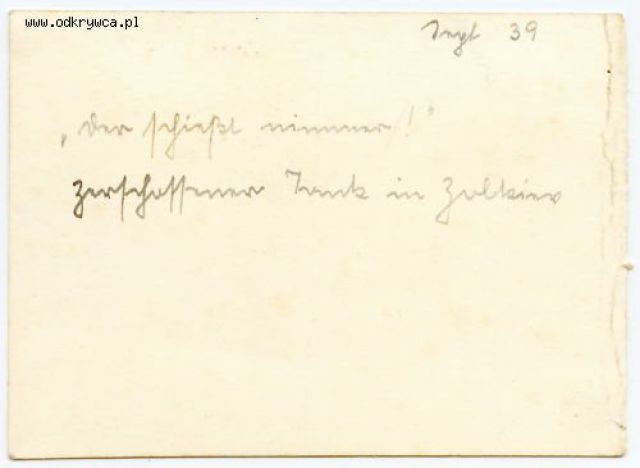 www.odkrywca.pl
Sept 39
„Der schießt nimmer!"
Zerschossener Tank in Zolkiew